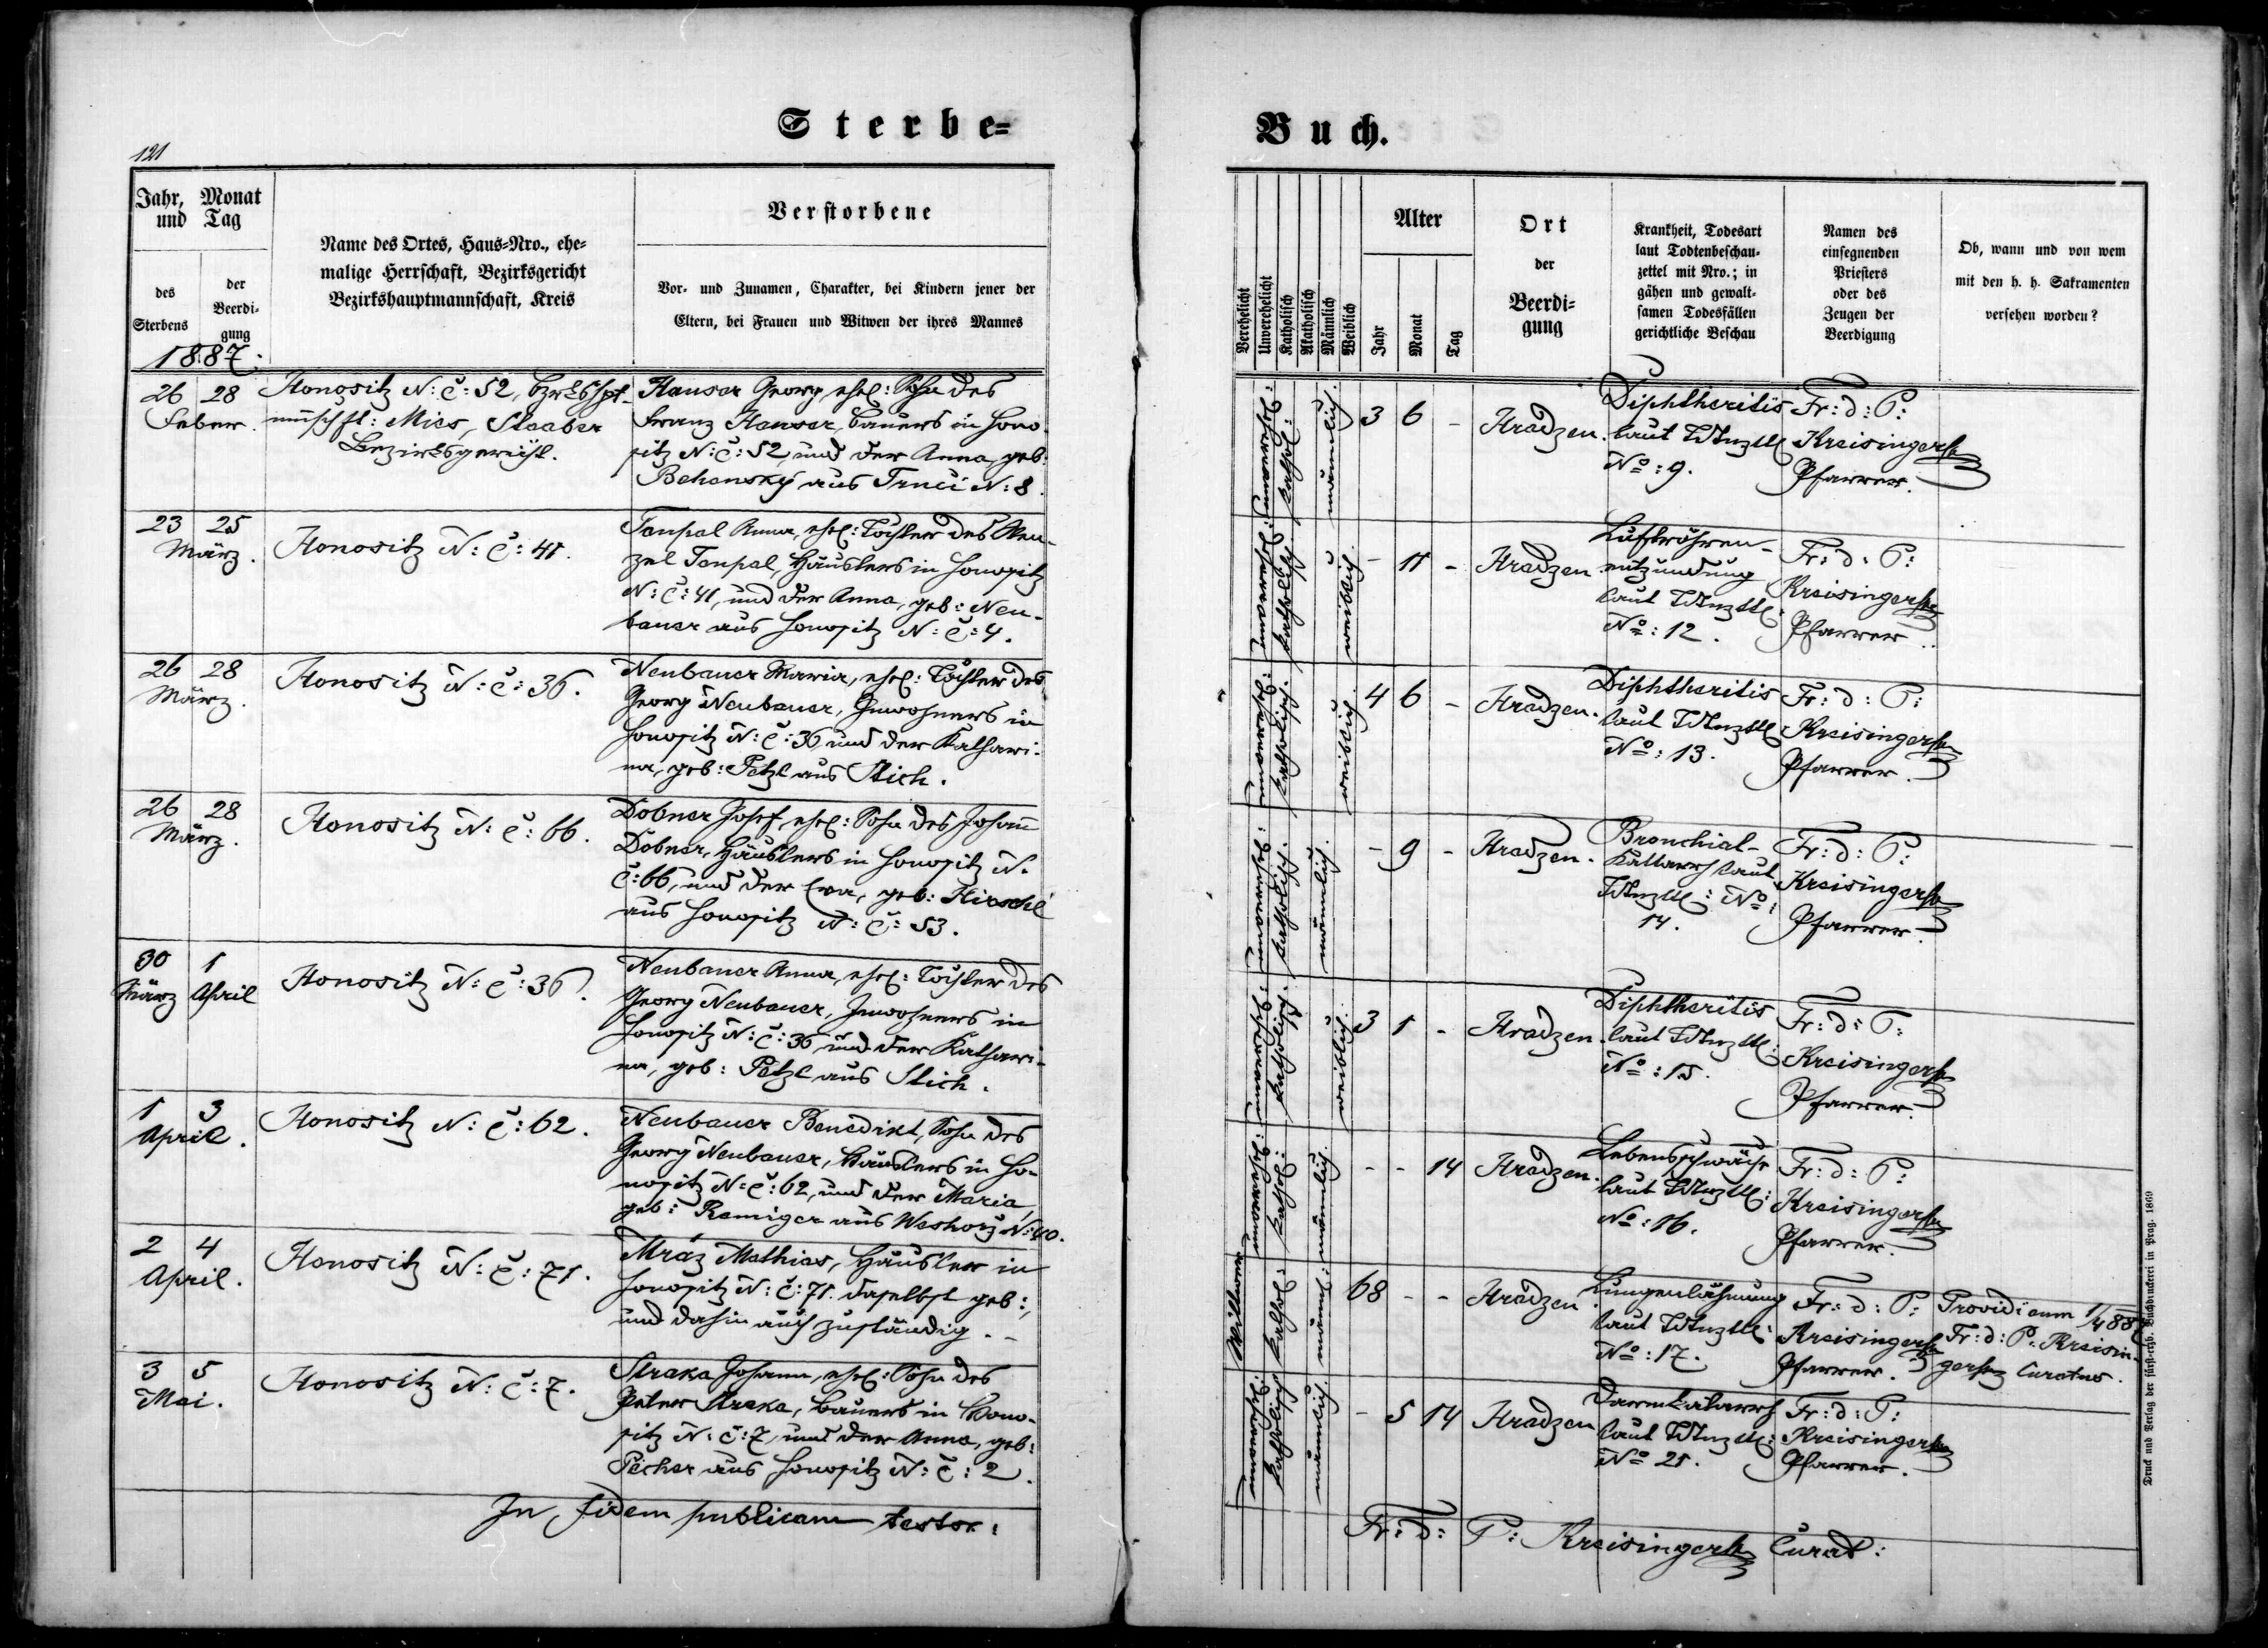 Sterbe=
121
Jahr, Monat
und Tag
des
Sterbens
der
Beerdi-
gung
Name des Ortes, Haus=Nro., ehe=
malige Herrschaft, Bezirksgericht
Bezirkshauptmannschaft, Kreis
Verstorbene
Vor- und Zunamen, Charakter, bei Kindern jener der
Eltern, bei Frauen und Witwen der ihres Mannes
1887.
26 28
Feber.
Honositz N: č: 52, bzrkshpt-
mschft: Mies, Staaber
Bezirksgericht.
Hanser Georg, ehel: Sohn des
Franz Hanser, Bauers in Hono-
sitz N: č: 52 und der Anna, geb:
Behensky aus Trnči N: 8.
23 25
März.
Honositz N: č: 41.
Tanpal Anna, ehel: Tochter des Wen-
zel Tanpal, Häuslers in Honositz
N: č: 41, und der Anna, geb: Neu-
bauer aus Honositz N: č: 4.
26 28
März.
Honositz N: č: 36.
Neubauer Maria, ehel: Tochter des
Georg Neubauer, Inwohners in
Honositz N: č: 36 und der Kathari-
na, geb: Petzl aus Stich.
26 28
März.
Honositz N: č: 66.
Dobner Josef, ehel: Sohn des Johann
Dobner, Häuslers in Honositz N.
č: 66, und der Eva, geb: Hirschl
aus Honositz N: č: 53.
30 1
März April
Honositz N: č: 36.
Neubauer Anna, ehel: Tochter des
Georg Neubauer, Inwohners in
Honositz N: č: 36 und der Kathari-
na, geb: Petzl aus Stich.
1 3
April.
Honositz N: č: 62.
Neubauer Benedikt, Sohn des
Georg Neubauer, Häuslers in Ho-
nositz N: č: 62, und der Maria,
geb: Ramiger aus Weshorz N: 40.
2 4
April.
Honositz N: č: 71.
Mráz Mathias, Häusler in
Honositz N: č: 71. daselbst geb:,
und dahin auch zuständig. -
3 5
Mai.
Honositz N: č: 7.
Straka Johann, ehel: Sohn des
Peter Straka, Bauers in Hono-
sitz N: č: 7, und der Anna, geb:
Pecher aus Honositz N: č: 2.
In fidem publicam testor:
Buch.
Verehelicht
Unverehelicht
Katholisch
Akatholisch
Männlich
Weiblich
Alter
Jahr
Monat
Tag
Ort
der
Beerdi=
gung
Krankheit, Todesart
laut Todtenbeschau-
zettel mit Nro.; in
gähen und gewalt-
samen Todesfällen
gerichtliche Beschau
Namen des
einsegnenden
Priesters
oder des
Zeugen der
Beerdigung
Ob, wann und von wem
mit den h. h. Sakramenten
versehen worden?
unverehel:
kathol:
männlich.
3 6 -
Hradzen.
Diphtheritis
laut
No: 9.
Fr: d: P:
Kreisinger
Pfarrer.
unverehel:
katholisch
weiblich.
- 11 -
Hradzen
Luftröhren-
entzündung
laut
No: 12.
Fr: d: P:
Kreisinger
Pfarrer.
unverehel:
katholisch.
weiblich.
4 6 -
Hradzen.
Diphtheritis
laut
No: 13.
Fr: d: P:
Kreisinger
Pfarrer.
unverehel:
katholisch.
männlich.
- 9 -
Hradzen.
Bronchial-
Kattarrh laut
No:
14.
Fr: d: P:
Kreisinger
Pfarrer.
unverehel:
katholisch.
weiblich.
3 1 -
Hradzen.
Diphtheritis
laut
No: 15.
Fr: d: P:
Kreisinger
Pfarrer.
unverehel:
kathol:
männlich.
- - 14
Hradzen.
Lebensschwäche
laut
No: 16.
Fr: d: P:
Kreisinger
Pfarrer.
Wittwer
kathol:
männl:
68 - -
Hradzen
Lungenlähmung
laut
No: 17.
Fr: d: P:
Kreisinger
Pfarrer.
Providi eum 1/4 887
Fr: d: P: Kreisin-
ger Curatus.
unverehel:
katholisch
männlich.
- 5 14
Hradzen
Darmkatarrh
laut
No 21.
Fr: d: P:
Kreisinger
Pfarrer.
Fr: d: P: Kreisinger Curat:
Druck und Verlag der fürst-erzb. Buchdruckerei in Prag. 1869